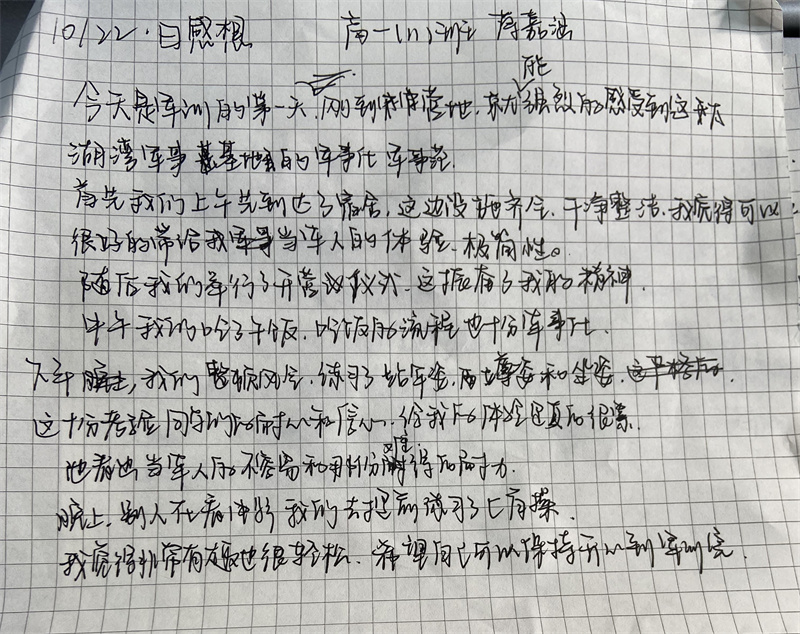 10/22.日感根 高一(11)班 蒋嘉涵
今天是军训的第一天,刚到营地,就能强烈的感受到这和太
湖湾军事基地的军事化军事范.
首先我们上午先到达了宿舍,这边设施齐全,干净整洁,我觉得可以
很好的带给我当军人的体验,极简性。
随后我们举行了开营仪式,这振奋了我的精神.
中午我们吃了午饭,吃饭的流程也十分军事化.
下午,我们整顿风气,练习了站军姿,蹲姿和坐姿.
这十分考验同学们的耐心和信心,给我的体验是真的很累.
也看出当军人的不容易和十分难得的耐力.
晚上,别人在看 我们去提前练习了七肩操.
我觉得非常有趣也很轻松.希望自己可以保持开心到军训完.